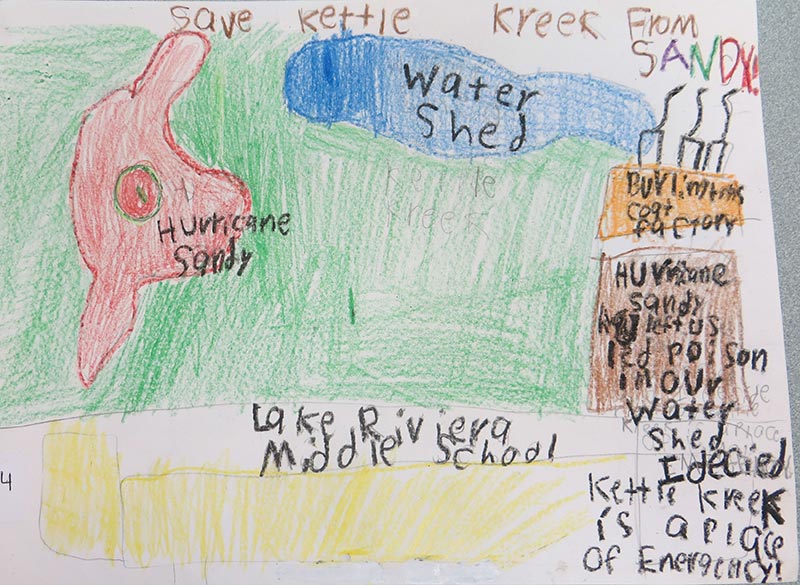 Save Kettle Kreek From
SANDY!
Water
Shed
Kettle
Kreek
Hurricane
Sandy
Burlintons
coat
factory
HUrricane
Sandy
left us
led poison
in our
water
shed
I decied
Kettle Kreek
is a place
Of Energency!
Lake Riviera
Middle School
4